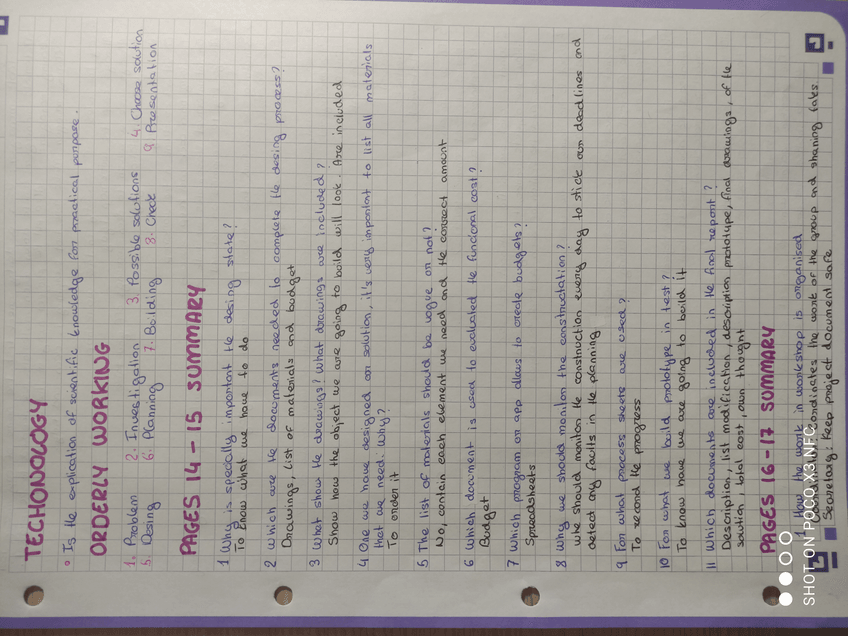 TECHONOLOGY
• Is the explication of scientific knowledge for practical purpose.
ORDERLY WORKING
1. Problem 2. Investigation 3. Possible solutions 4. Choose solution
5. Desing 6. Planning 7. Building 8. Check 9. Presentation
PAGES 14 - 15 SUMMARY
1 Why is specially important the desing state?
To know what we have to do
2 Which are the documents needed to complete the desing process?
Drawings, list of materials and budget
3 What show the drawings? What drawings are included?
Show how the object we are going to build will look. Are included
4 One we have designed an solution, it's very important to list all materials
that we need. Why?
To order it
5 The list of materials should be vogue or not?
No, contain each element we need and the correct amount
6 Which document is used to evaluated the funcional cost?
Budget
7 Which program or app allows to create budgets?
Spreadsheets
8 Why we should monitor the constructation?
Whe should monitor the construction every day to stick our deadlines and
detect any faults in the planning
9 For what process sheets are used?
To record the progress
10 For what we build prototype in test?
To know have we are going to build it
11 Which documents are included in the final report?
Description, list modification, description prototype, final drawings, of the
solution, total cost, own thought
PAGES 16-17 SUMMARY
1 How the work in workshop is organised
Coordinator: Coordinates the work of the group and sharing
Secretary: Keep project document safe
SHOT ON POCO X3 NFC